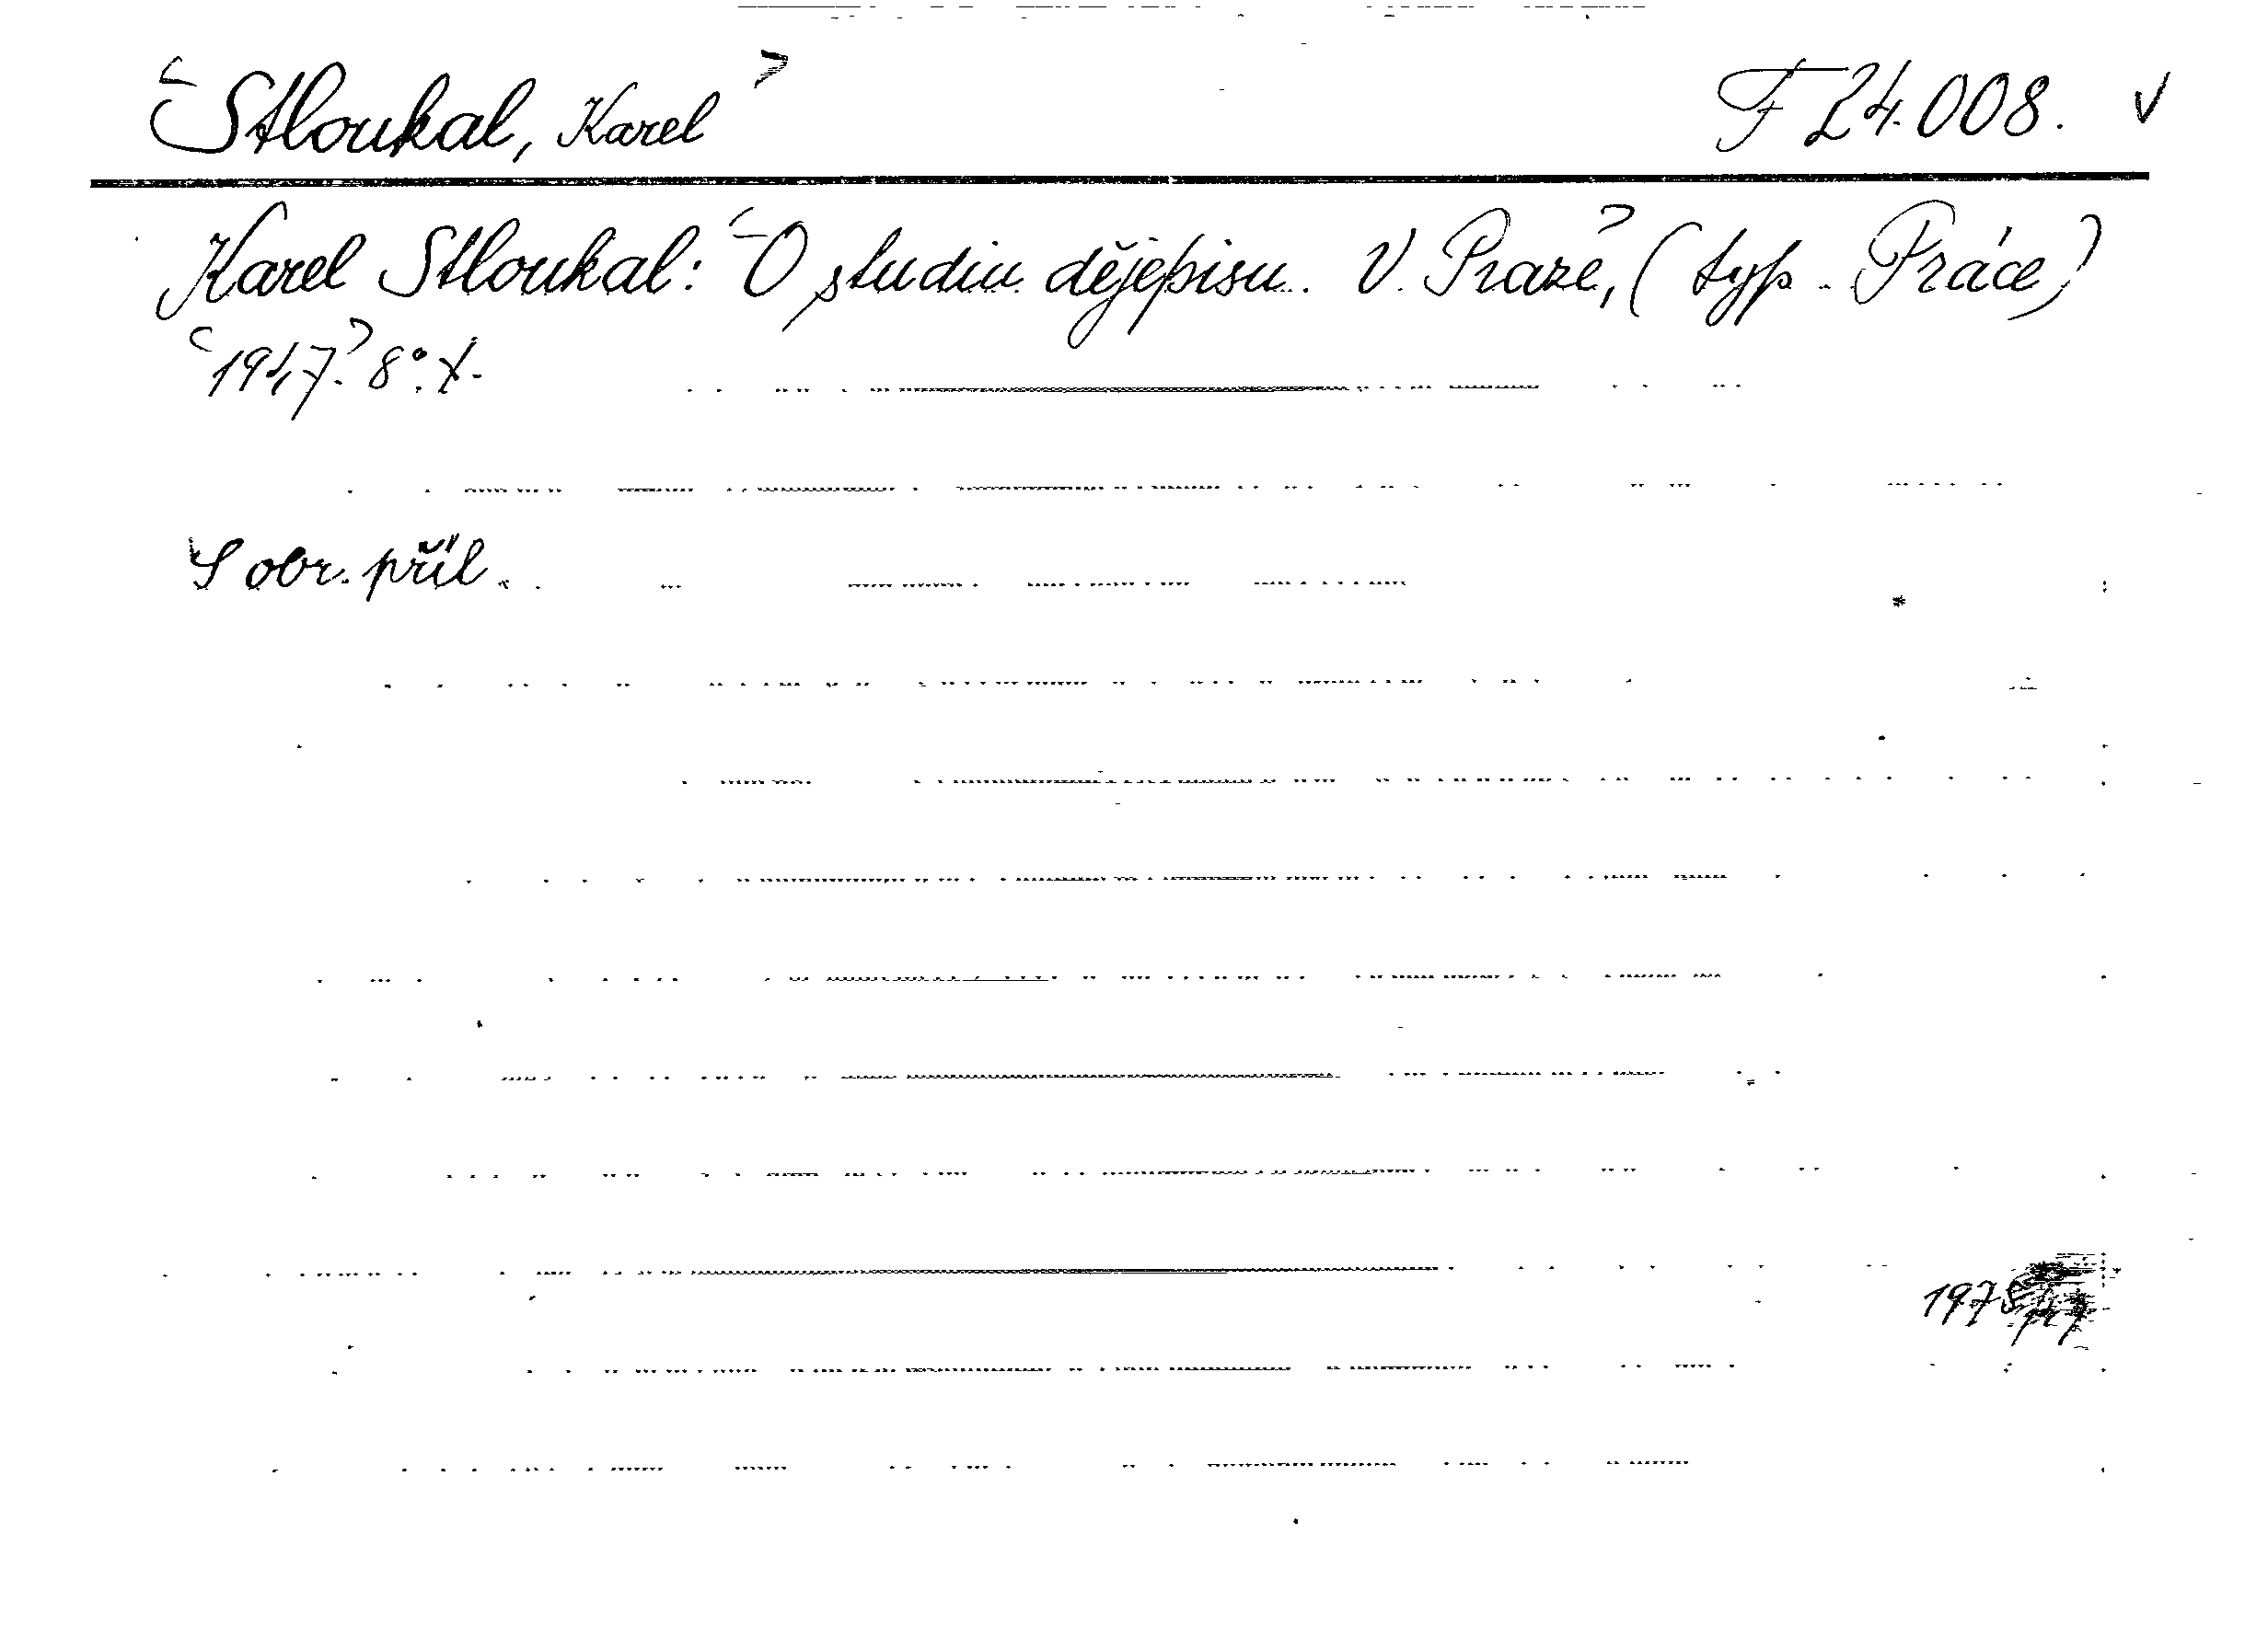 Stloukal, Karel F 24.008. V
Karel Stloukal: O studiu dějepisu. V Praze, (typ. Práce)
1947. 8°. X.
S obr. příl.